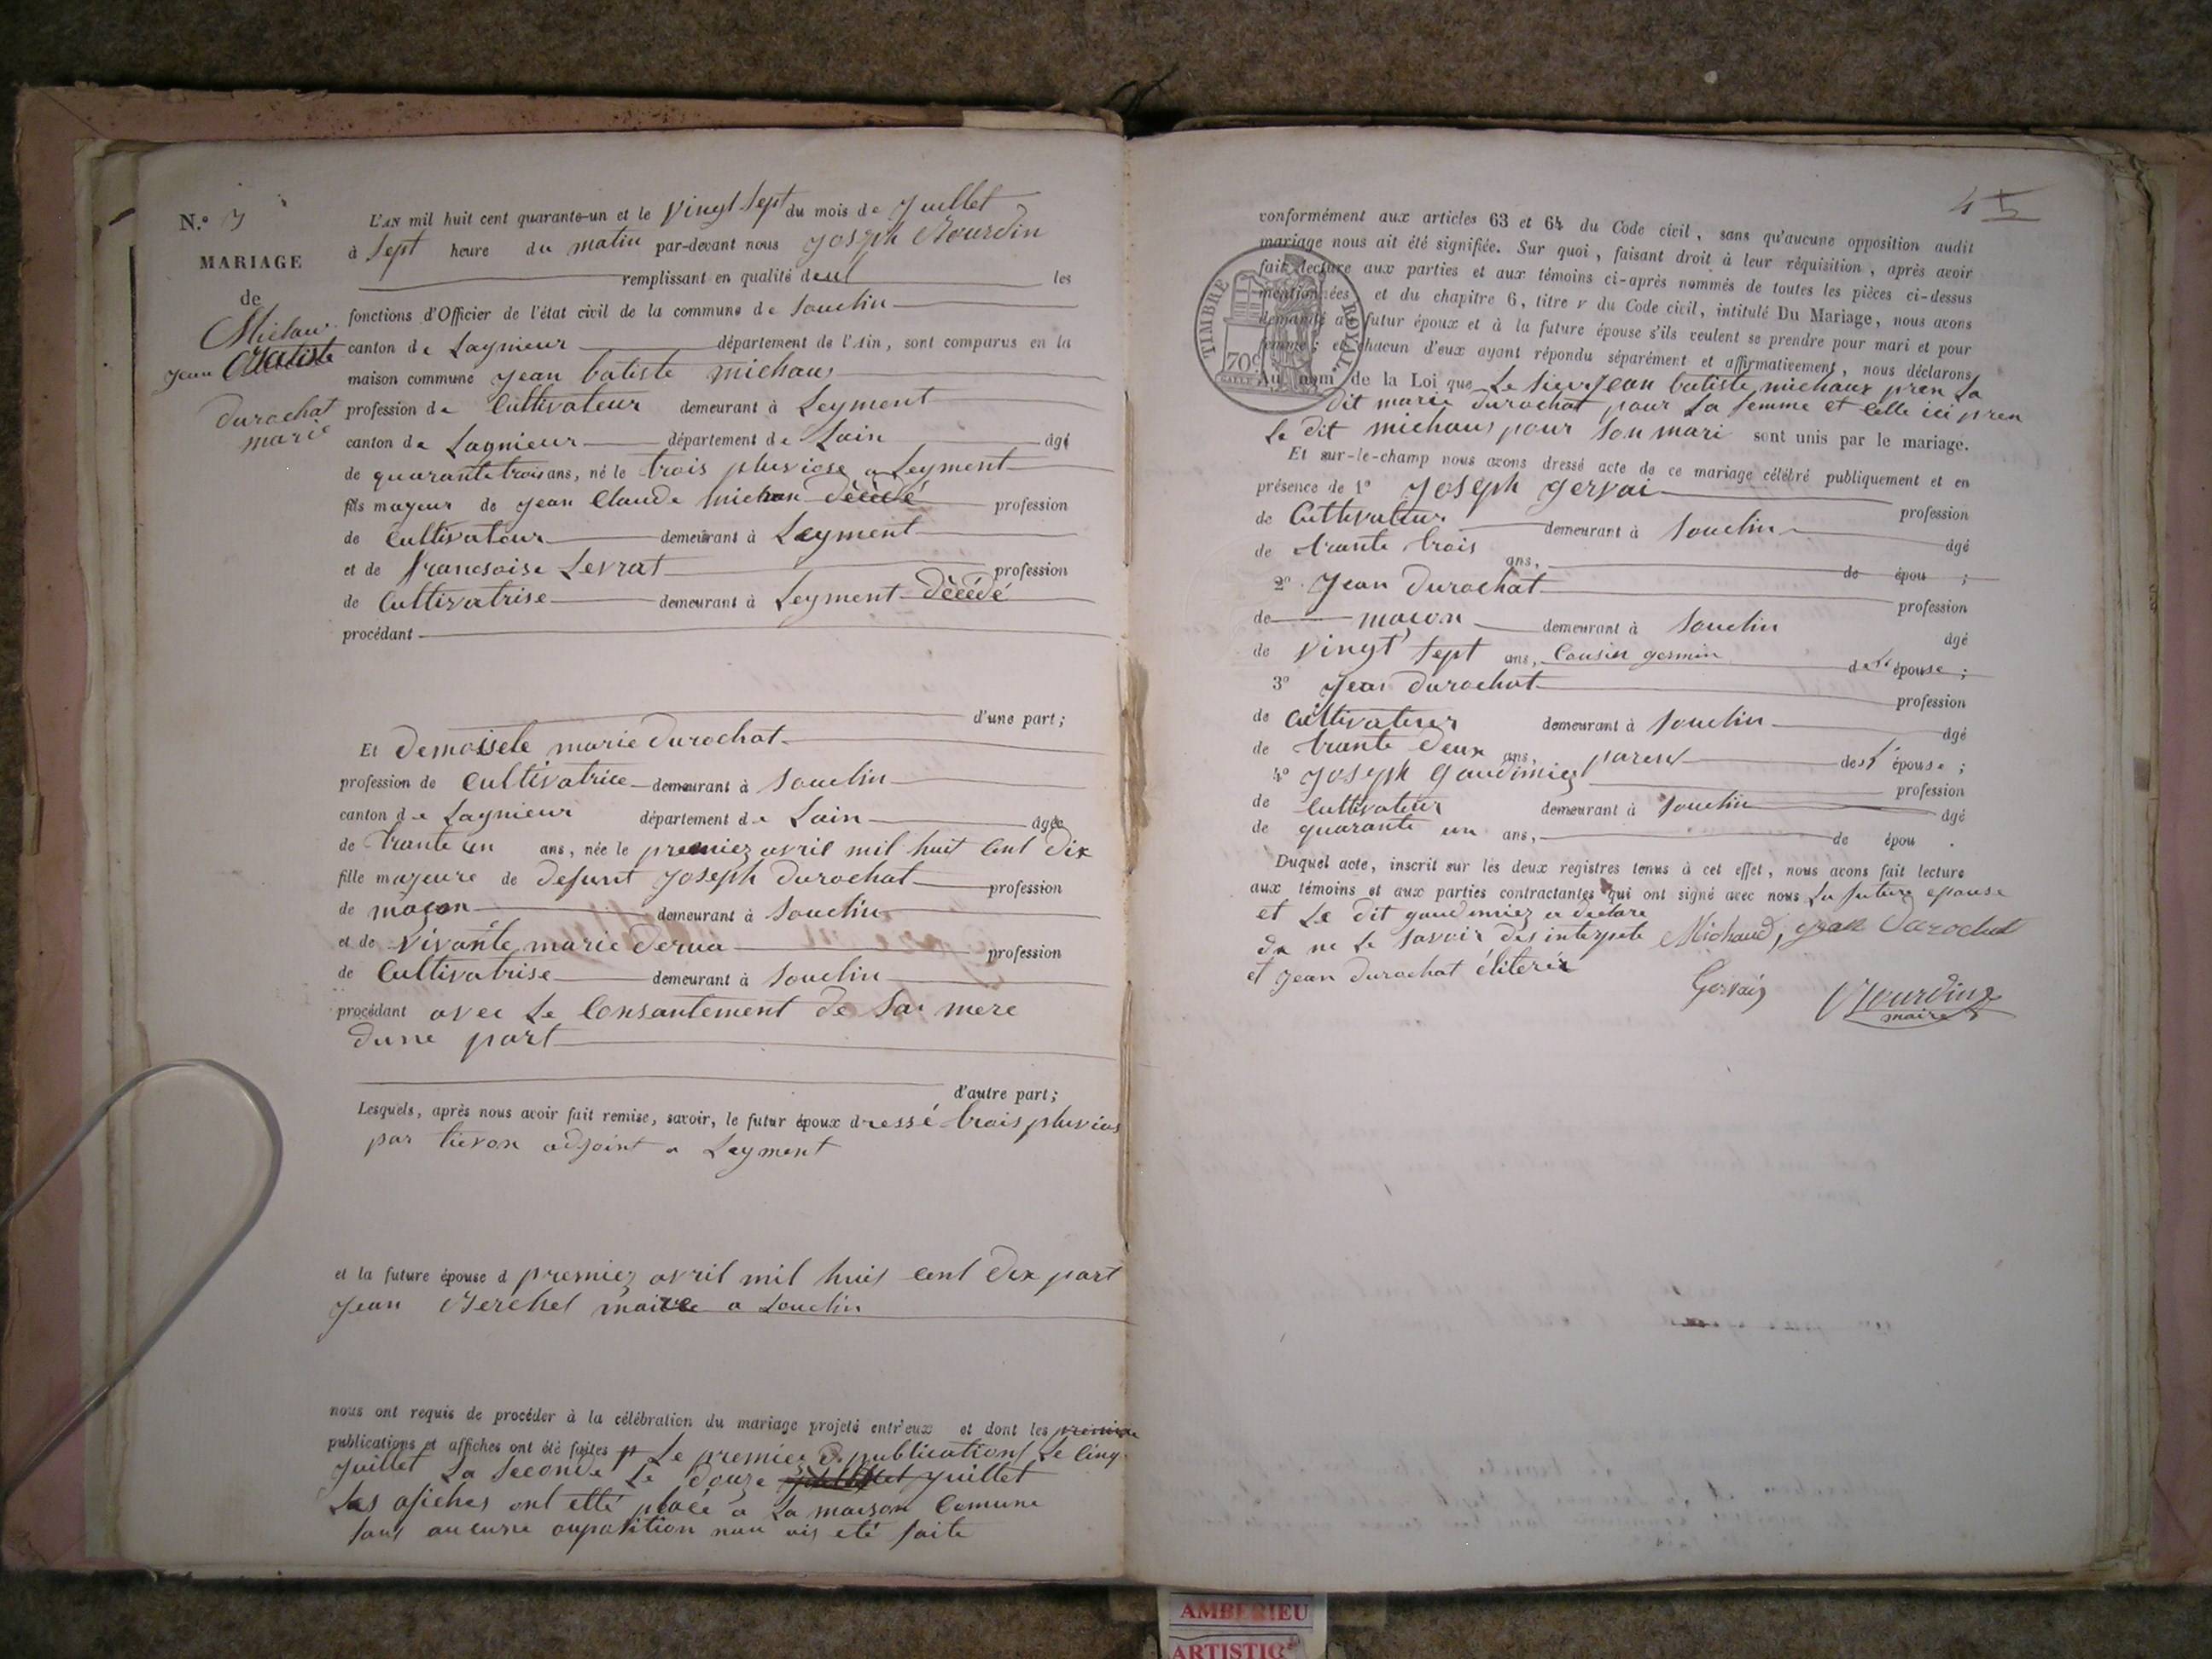 N.° 7
MARIAGE
de
Michau
Jean Batiste
durochat
marie
L'AN mil huit cent quarante-un et le vingt sept du mois de Juillet
à sept heure du matin par-devant nous Joseph Bourdin
remplissant en qualité deul les
fonctions d'Officier de l'état civil de la commune de Souclin
canton de Lagnieur département de l'Ain, sont comparus en la
maison commune Jean batiste michaus
profession de Cultivateur demeurant à Leyment
canton de Lagnieur département de Lain âgé
de quarante trois ans, né le trois pluviose a Leyment
fils majeur de Jean Claude michau décédé profession
de Cultivateur demeurant à Leyment
et de francsoise Levrat profession
de Cultivatrise demeurant à Leyment décédé
procédant
d'une part;
Et demoisele marie durochat
profession de Cultivatrice demeurant à Souclin
canton de Lagnieur département de Lain âgée
de trante un ans, née le premiez avril mil huit Cent dix
fille majeure de defunt Joseph durochat profession
de maçon demeurant à Souclin
et de vivante marie derua profession
de Cultivatrise demeurant à Souclin
procédant avec Le Consantement de Sa mere
dune part
d'autre part;
Lesquels, après nous avoir fait remise, savoir, le futur époux dressé trois pluvios
par tievon adjoint a Leyment
et la future épouse d premiez avril mil huis cent dix part
Jean Berchet maire a Souclin
nous ont requis de procéder à la célébration du mariage projeté entr'eux et dont les premiere
publications et affiches ont été faites Le premiez publications Le Cinq
Juillet La Seconde Le douze Juillet
Les afiches ont etté placé a La maison Comune
sans aucune ouposition nau ais eté faite
4
conformément aux articles 63 et 64 du Code civil, sans qu'aucune opposition audit
mariage nous ait été signifiée. Sur quoi, faisant droit à leur réquisition, après avoir
fait lecture aux parties et aux témoins ci-après nommés de toutes les pièces ci-dessus
mentionnées et du chapitre 6, titre V du Code civil, intitulé Du Mariage, nous avons
demandé au futur époux et à la future épouse s'ils veulent se prendre pour mari et pour
femme; et chacun d'eux ayant répondu séparément et affirmativement, nous déclarons,
TIMBRE ROYAL.
70c
Au nom de la Loi que Le Sieur Jean batiste michaux pren La
dit marie durochat pour Sa femme et Celle ici pren
Le dit michaus pour Son mari sont unis par le mariage.
Et sur-le-champ nous avons dressé acte de ce mariage célébré publiquement et en
présence de 1° Joseph Gervai profession
de Cultivateur demeurant à Souclin âgé
de trante trois ans, de épou ;
2° Jean durochat profession
de macon demeurant à Souclin âgé
de vingt sept ans, Cousin germin de L' épouse ;
3° Jean durochat profession
de Cultivateur demeurant à Souclin âgé
de trante deux ans, parent de L' épouse ;
4° Joseph Gaudimiez profession
de Cultivateur demeurant à Souclin âgé
de quarante un ans, de épou .
Duquel acte, inscrit sur les deux registres tenus à cet effet, nous avons fait lecture
aux témoins et aux parties contractantes qui ont signé avec nous La future epouse
et Le dit gaudimiez a declare
de ne Le Savoir des interpete Michaud, Jean Durochat
et Jean durochat éliterér
Gervais Bourdin
maire
AMBERIEU
ARTISTIQ